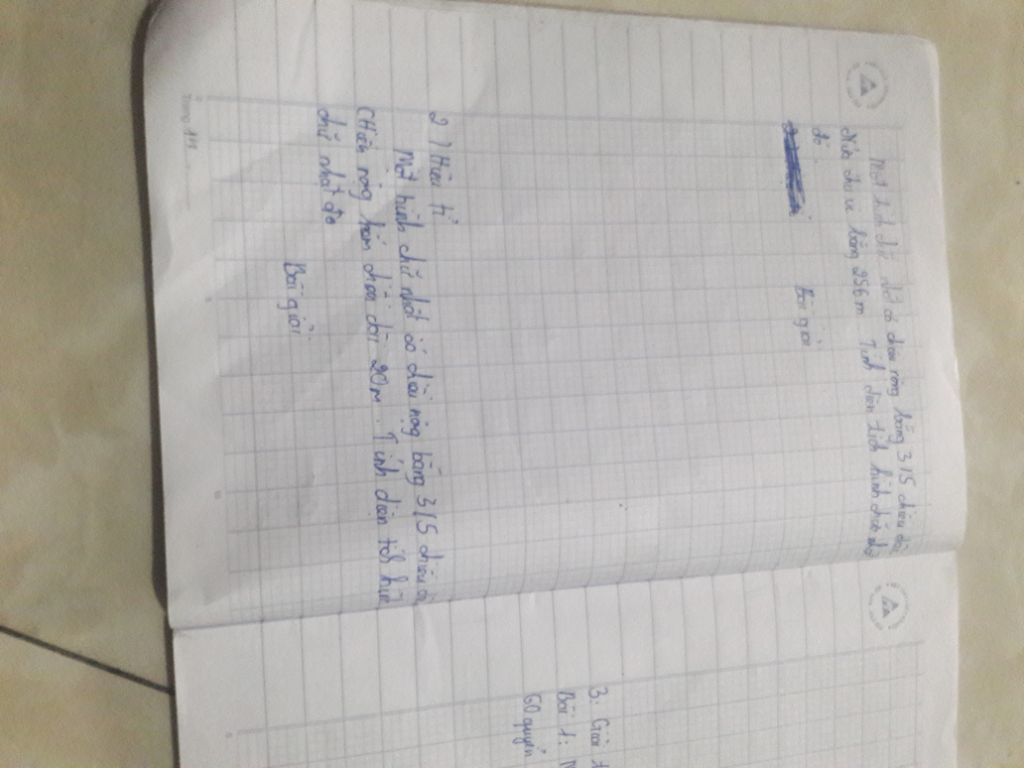 Một hình chữ nhật có chiều rộng bằng 3/5 chiều dài
Nửa chu vi bằng 256m. Tính diện tích hình chữ nhật
đó.
Bài giải
2) Hiệu tỉ
Một hình chữ nhật có chiều rộng bằng 3/5 chiều
Chiều rộng kém chiều dài 20m. Tính diện tích hình
chữ nhật đó
Bài giải
Trang
3. Giải
Bài 1:
60 quyển